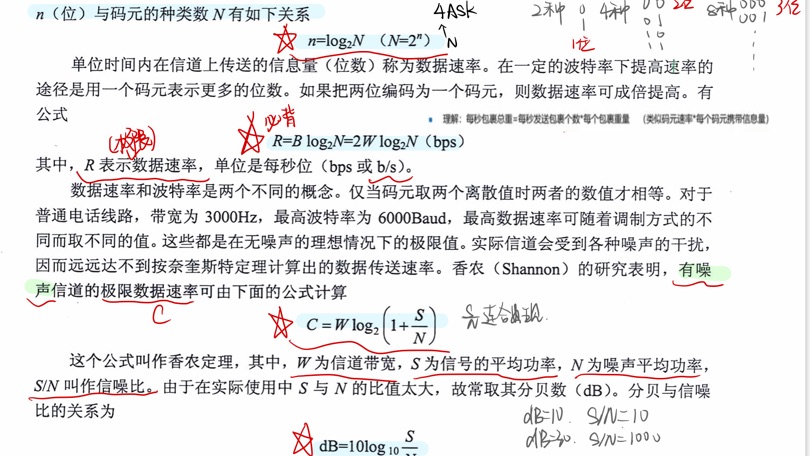 n（位）与码元的种类数 N 有如下关系
4Ask
2种 0 4种 00 2位 8种 000 3位
1 01 001
10
11
1位
n=log₂N （N=2ⁿ） N
单位时间内在信道上传送的信息量（位数）称为数据速率。在一定的波特率下提高速率的
途径是用一个码元表示更多的位数。如果把两位编码为一个码元，则数据速率可成倍提高。有
公式
理解：每秒包裹总重=每秒发送包裹个数*每个包裹重量 （类似码元速率*每个码元携带信息量）
必背
(极限)
R=B log₂N=2W log₂N（bps）
其中，R 表示数据速率，单位是每秒位（bps 或 b/s）。
数据速率和波特率是两个不同的概念。仅当码元取两个离散值时两者的数值才相等。对于
普通电话线路，带宽为 3000Hz，最高波特率为 6000Baud，最高数据速率可随着调制方式的不
同而取不同的值。这些都是在无噪声的理想情况下的极限值。实际信道会受到各种噪声的干扰，
因而远远达不到按奈奎斯特定理计算出的数据传送速率。香农（Shannon）的研究表明，有噪
声信道的极限数据速率可由下面的公式计算
C
C = W log₂(1+S/N)
这个公式叫作香农定理，其中，W 为信道带宽，S 为信号的平均功率，N 为噪声平均功率，
S/N 叫作信噪比。由于在实际使用中 S 与 N 的比值太大，故常取其分贝数（dB）。分贝与信噪
比的关系为
dB=10 S/N=10
dB=30 S/N=1000
dB=10log₁₀ S/N